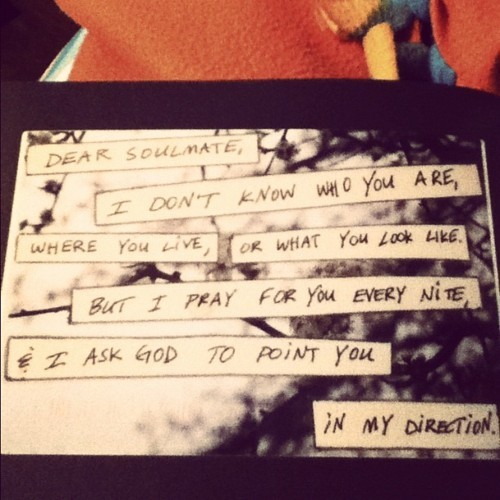 DEAR SOULMATE,
I DON'T KNOW WHO YOU ARE,
WHERE YOU LIVE, OR WHAT YOU LOOK LIKE.
BUT I PRAY FOR YOU EVERY NITE,
& I ASK GOD TO POINT YOU
IN MY DIRECTION.